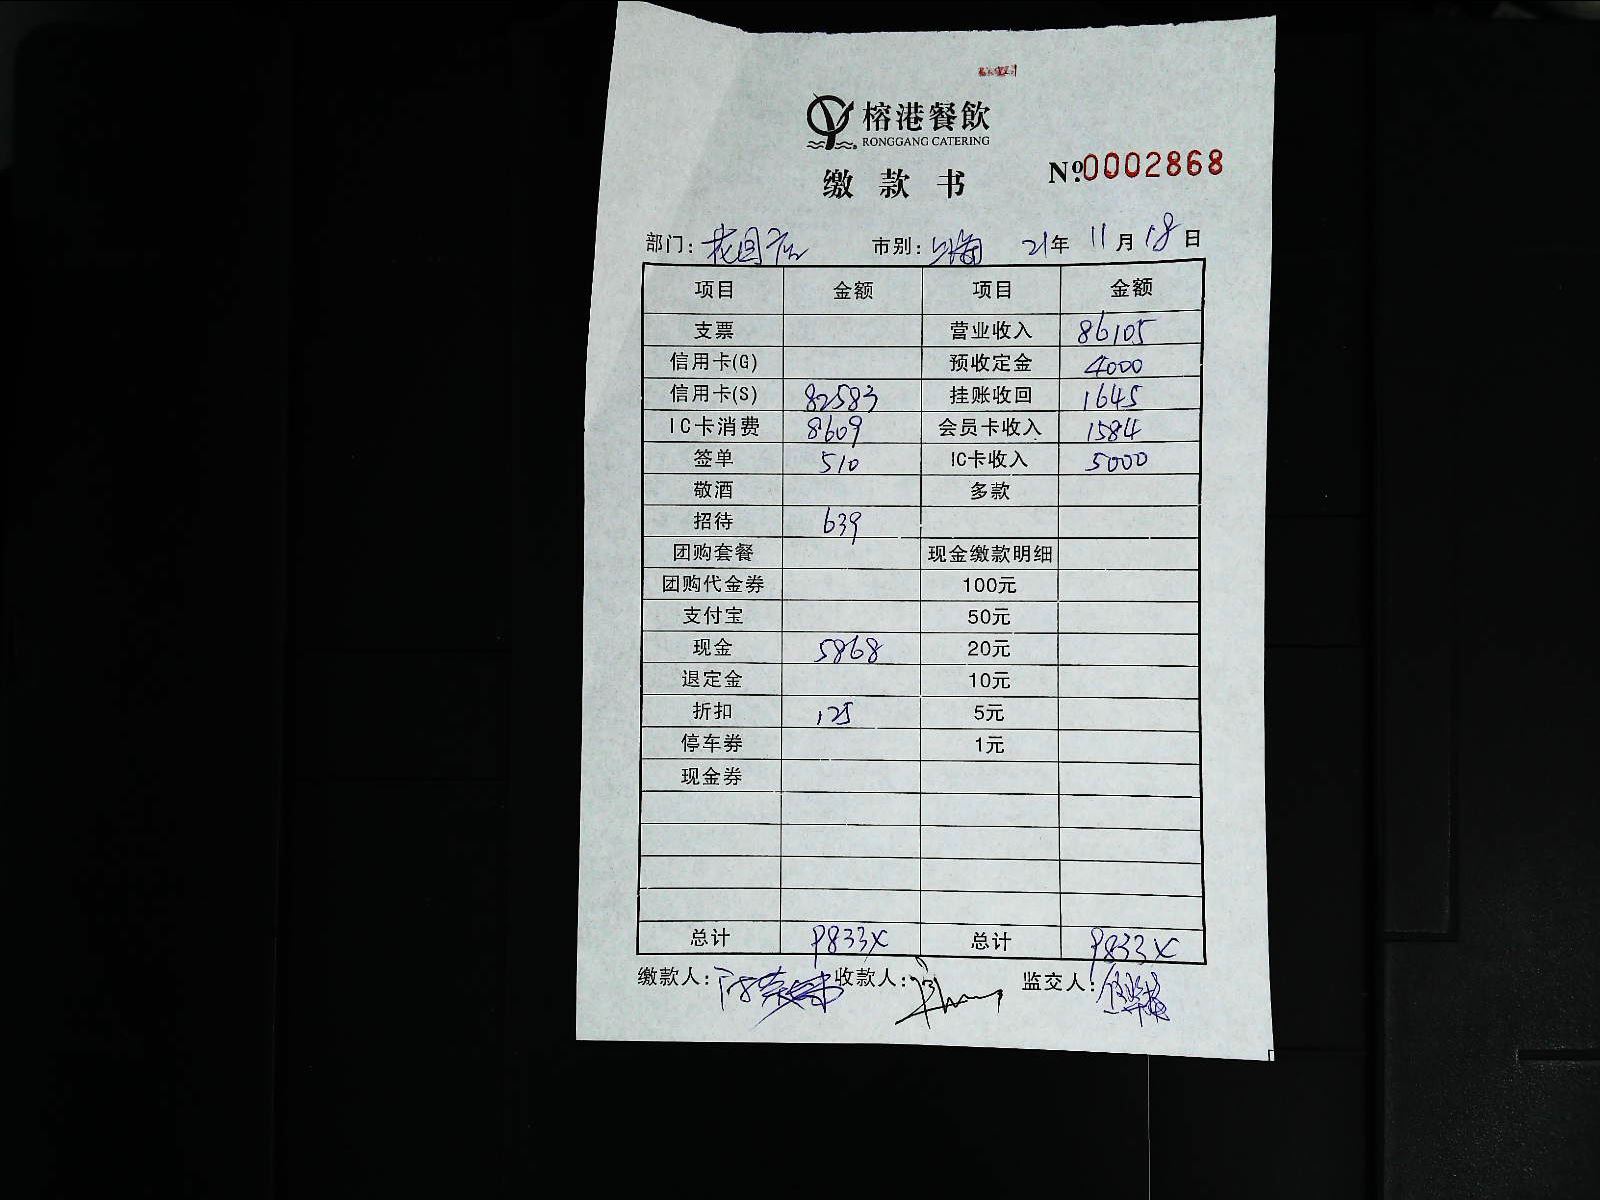 榕港餐飲
RONGGANG CATERING
缴款书 №0002868
部门: 花园店 市别: 上海 21年 11月 18日
项目 金额 项目 金额
支票 营业收入 86105
信用卡(G) 预收定金 4000
信用卡(S) 82583 挂账收回 1645
IC卡消费 8609 会员卡收入 1584
签单 510 IC卡收入 5000
敬酒 多款
招待 639
团购套餐 现金缴款明细
团购代金券 100元
支付宝 50元
现金 5868 20元
退定金 10元
折扣 125 5元
停车券 1元
现金券
总计 98334 总计 98334
缴款人: 收款人: 监交人: